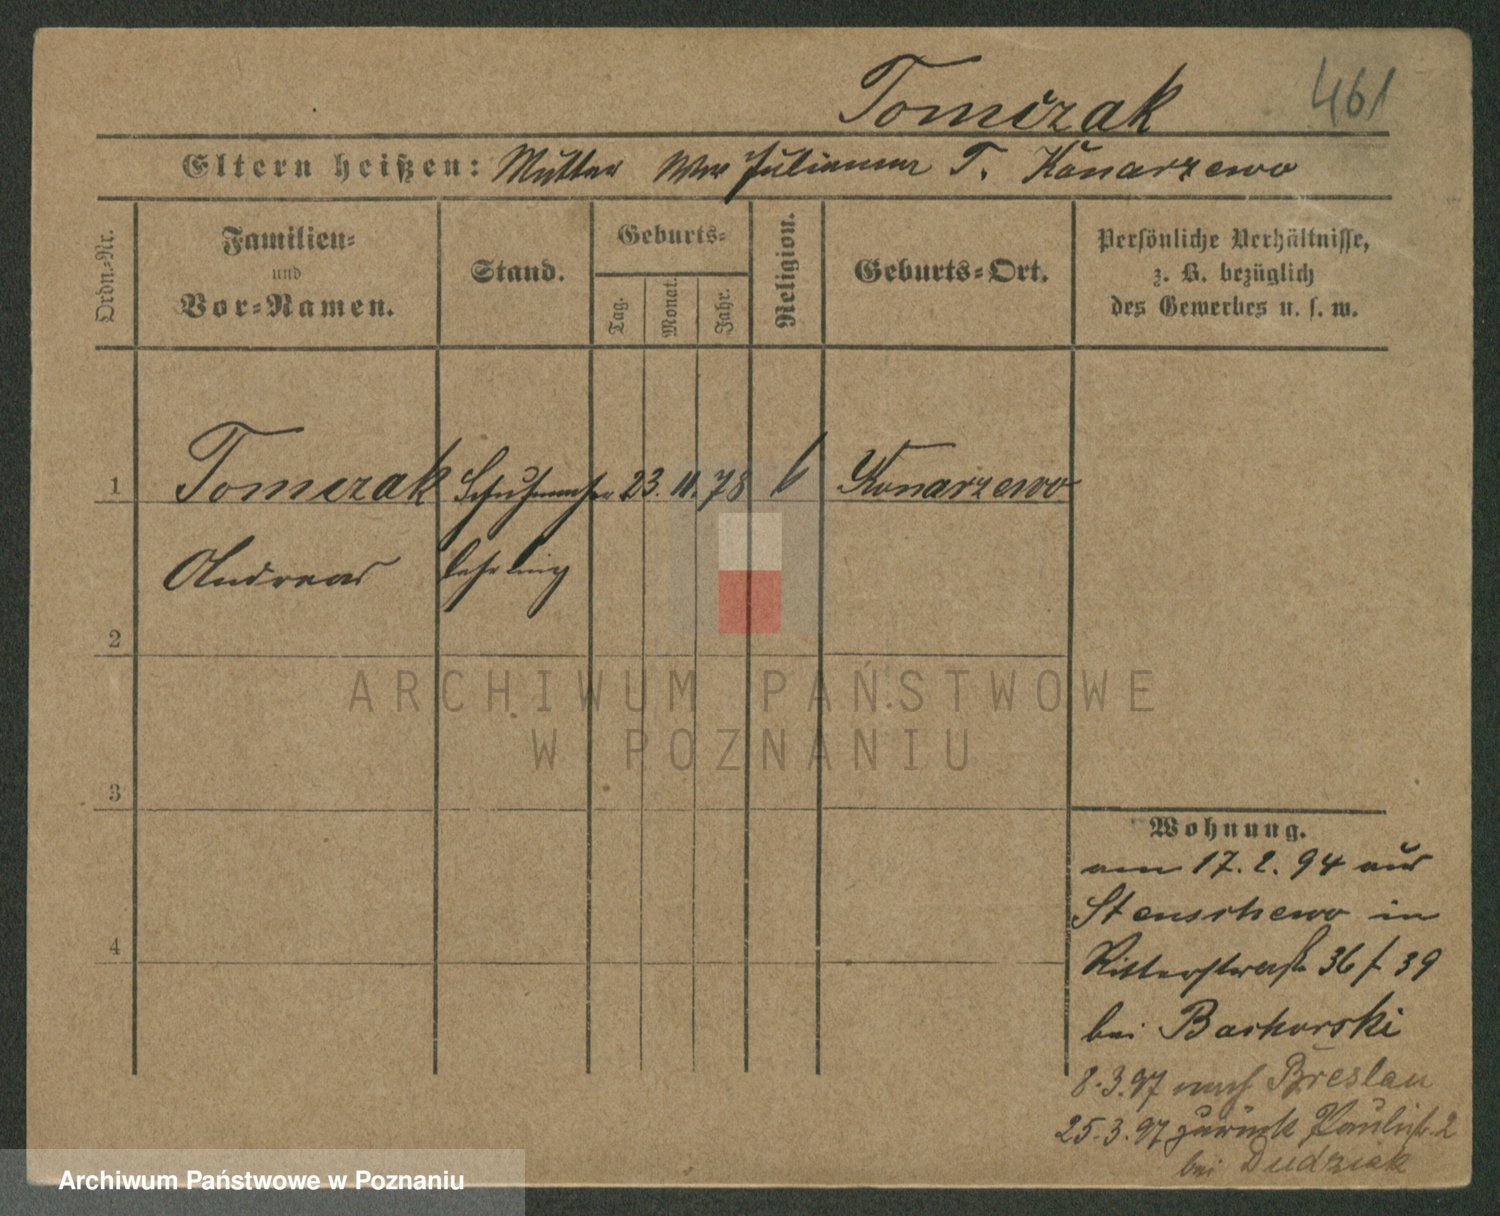 Tomczak 461
Eltern heißen: Mutter Wwe Julianna T. Konarzewo
Ordn.-Nr.
Familien-
und
Vor-Namen.
Stand.
Geburts-
Tag.
Monat.
Jahr.
Religion.
Geburts-Ort.
Persönliche Verhältnisse,
z. B. bezüglich
des Gewerbes u. s. w.
1 Tomczak Schuhmacher 23. 11. 78 Konarzewo
Andreas lehrling
2
3
4
Wohnung.
am 17. 2. 94 aus
Stenschewo in
Ritterstraße 36 / 39
bei Bachorski
8. 3. 97 nach Breslau
25. 3. 97 zurück Paulistr. 2
bei Dudziak
ARCHIWUM PAŃSTWOWE
W POZNANIU
Archiwum Państwowe w Poznaniu